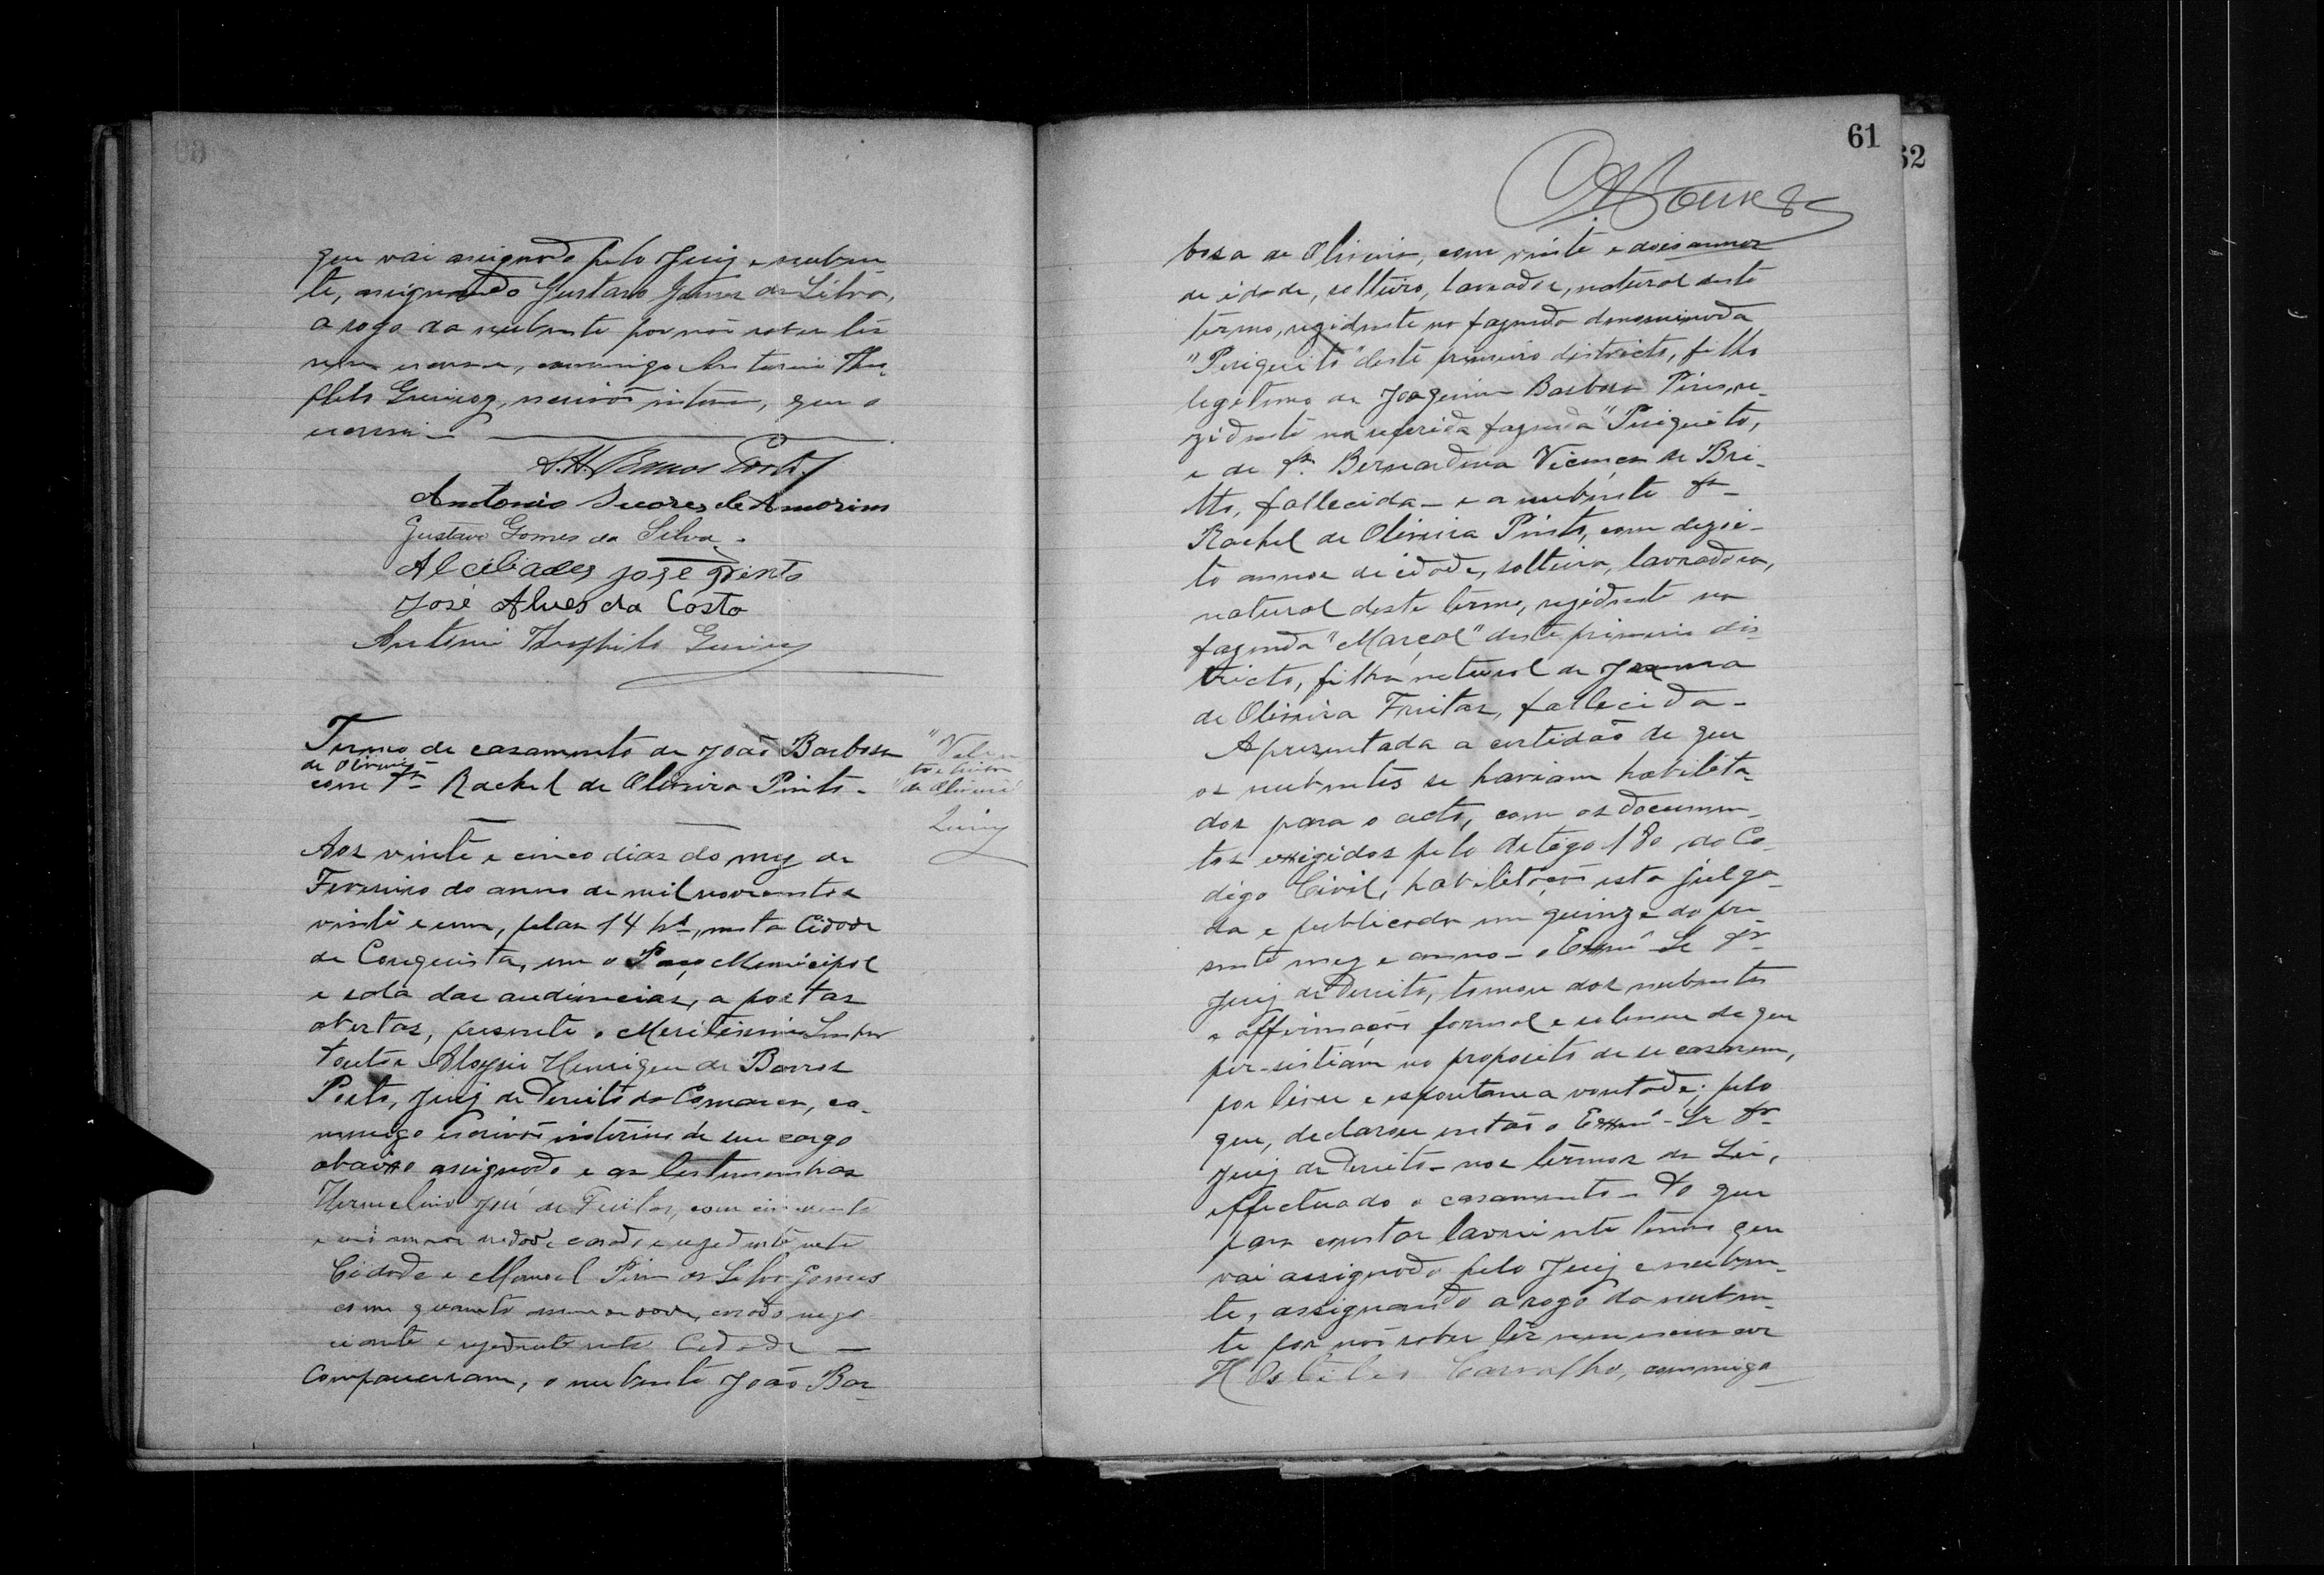 que vai assignado pelo Juiz e nuben-
te, assignando Gustavo Gomes da Silva,
a rogo da nubente por não saber lêr
nem escrever, commigo Antonio Theo-
philo Queiroz, escrivão interino, que o
escrevi —
A. H. Barros Porto
Antonio Soares de Amorim
Gustavo Gomes da Silva.
Alcibiades José Pinto
José Alves da Costa
Antonio Theophilo Queiroz
Termo de casamento de João Barbosa
de Oliveira
com Dª Rachel de Oliveira Pinto -
"de Oliveira"
Queiroz
Aos vinte e cinco dias do mez de
Fevereiro do anno de mil novecentos
vinte e um, pelas 14 hs, nesta Cidade
de Conquista, em o Paço Municipal
e sala das audiencias, a portas
abertas, presente o Meritissimo Senhor
Doutor Aloysio Henrique de Barros
Porto, Juiz de Direito da Comarca, co-
mmigo escrivão interino de seu cargo
abaixo assignado e as testemunhas
Hermelino José de Freitas, com cincoenta
e annos de edade, casado e rezidente nesta
Cidade e Manoel da Silva Gomes
com quarenta annos de edade, casado, nego-
ciante e rezidente nesta Cidade —
Compareceram, o nubente João Bar-
61
62
bosa de Oliveira, com vinte e dois annos
de idade, solteiro, lavrador, natural deste
têrmo, rezidente na fazenda denominada
"Periquito" deste primeiro districto, filho
legitimo de Joaquim Barbosa Pires, re-
zidente na referida fazenda "Periquito,
e de Dª Bernardina Vicencia de Bri-
tto, fallecida - e a nubente Dª
Rachel de Oliveira Pinto, com dezoi-
to annos de idade, solteira, lavradora,
natural deste têrmo, rezidente na
fazenda "Marçal" deste primeiro dis-
tricto, filha natural de
de Oliveira Freitas, fallecida -
Apresentada a certidão de que
os nubentes se haviam habilita-
dos para o acto, com os documen-
tos exigidos pelo Artigo 180, do Co-
digo Civil, habilitação esta julga-
da e publicada em quinze do pre-
sente mez e anno - o Exmº Sr Dr
Juiz de Direito, tomou dos nubentes
a affirmação formal e solemne de que
per-sistiam no proposito de se casarem,
por livre e espontanea vontade; pelo
que, declarou então o Exmº Sr Dr
Juiz de Direito - nos têrmos da Lei,
effectuado o casamento - Do que
para constar lavrei este têrmo que
vai assignado pelo Juiz e nuben-
te, assignando a rogo da nuben-
te por não saber lêr nem escrever
Carvalho, commigo